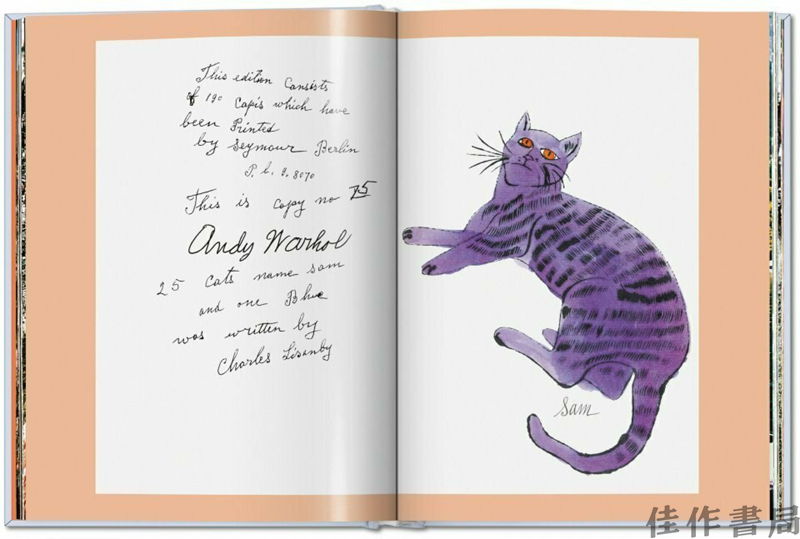 This edition Consists
of 190 Capis which have
been Printed
by Seymour Berlin
P. L. 9. 8070
This is copay no 75
Andy Warhol
25 Cats name sam
and one Blue
was written by
Charles Lisanby
Sam
佳作書局